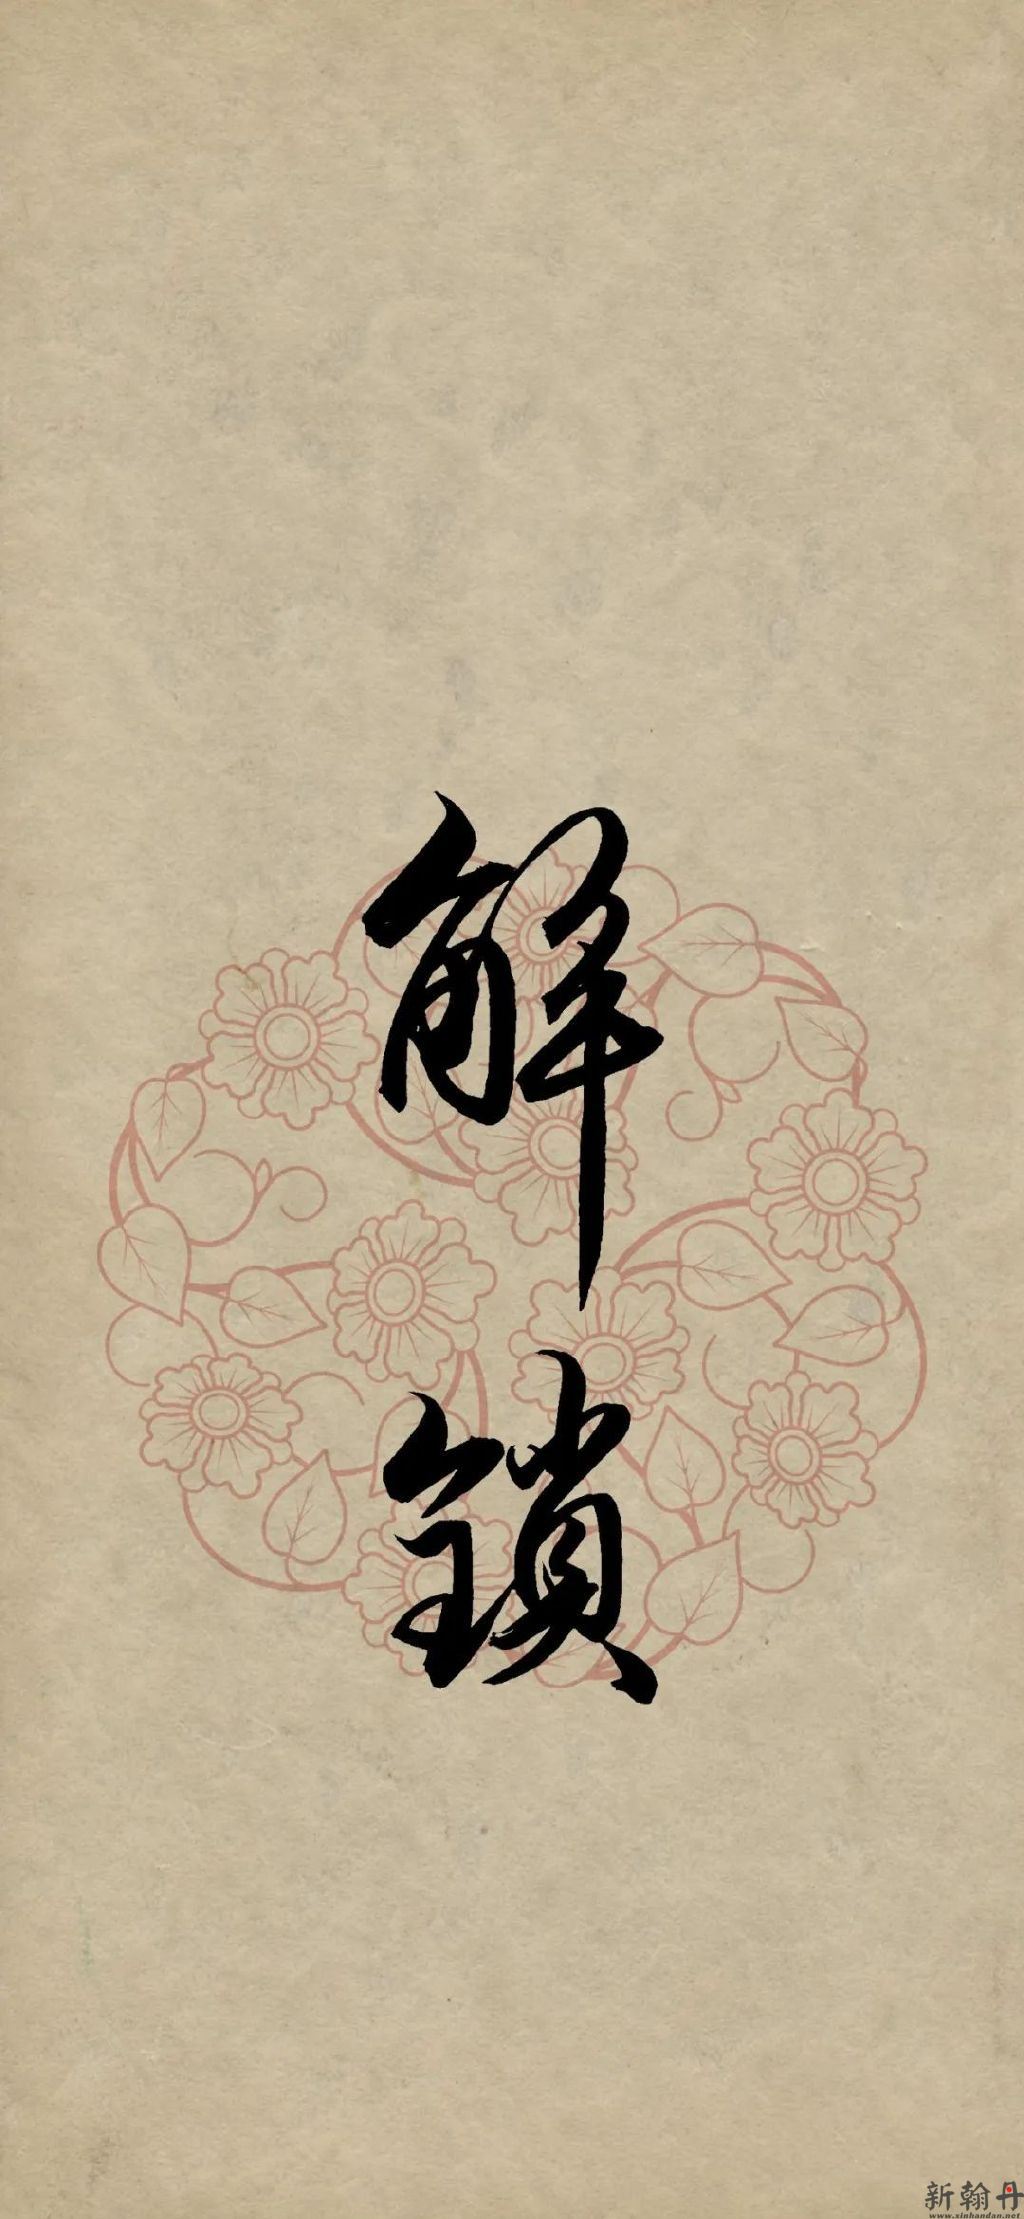 解
鎖
新翰丹
www.xinhandan.net